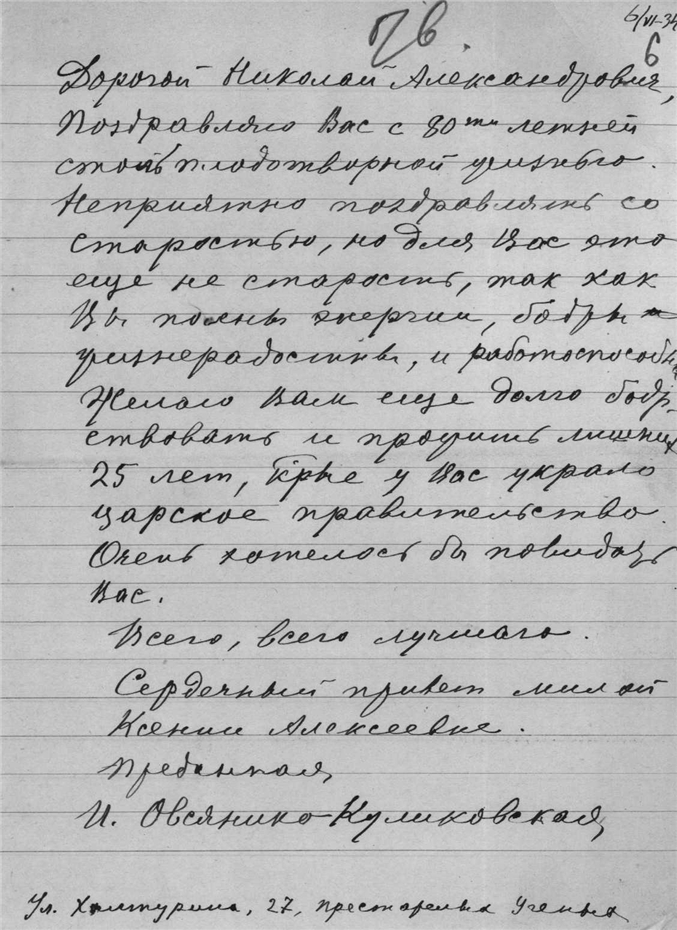 6/VI-34
6
Дорогой Николай Александрович,
Поздравляю Вас с 80ти летней
столь плодотворной жизнью.
Неприятно поздравлять со
старостью, но для Вас это
еще не старость, так как
Вы полны энергии, бодры
жизнерадостны, и работоспособны
Желаю Вам еще долго бодр-
ствовать и прожить лишних
25 лет, крые у Вас украло
царское правительство.
Очень хотелось бы повидать
Вас.
Всего, всего лучшаго.
Сердечный привет милой
Ксении Алексеевне.
Преданная
И. Овсянико-Куликовская
Ул. Халтурина, 27, престарелых Ученых